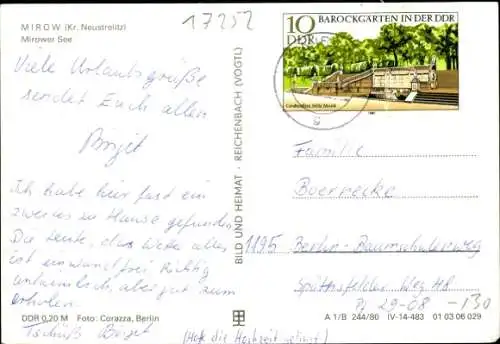 MIROW (Kr. Neustrelitz)
Mirower See
17252
Viele Urlaubsgrüße
sendet Euch allen
Birgit
Ich habe hier fast ein
zweites zu Hause gefunden
Die Leute, das Wetter alles
ist einwandfrei Richtig
aber gut zum
erholen.
Tschüß Birgit
(Hat die Hochzeit
DDR 0,20 M Foto: Corazza, Berlin
BILD UND HEIMAT · REICHENBACH (VOGTL)
10 BAROCKGÄRTEN IN DER DDR
DDR
Großsedlitz, Stille Musik
Familie
Boernecke
1195 Berlin-Baumschulenweg
Späthsfelder Weg
29-08 -130
A 1/B 244/80 IV-14-483 01 03 06 029